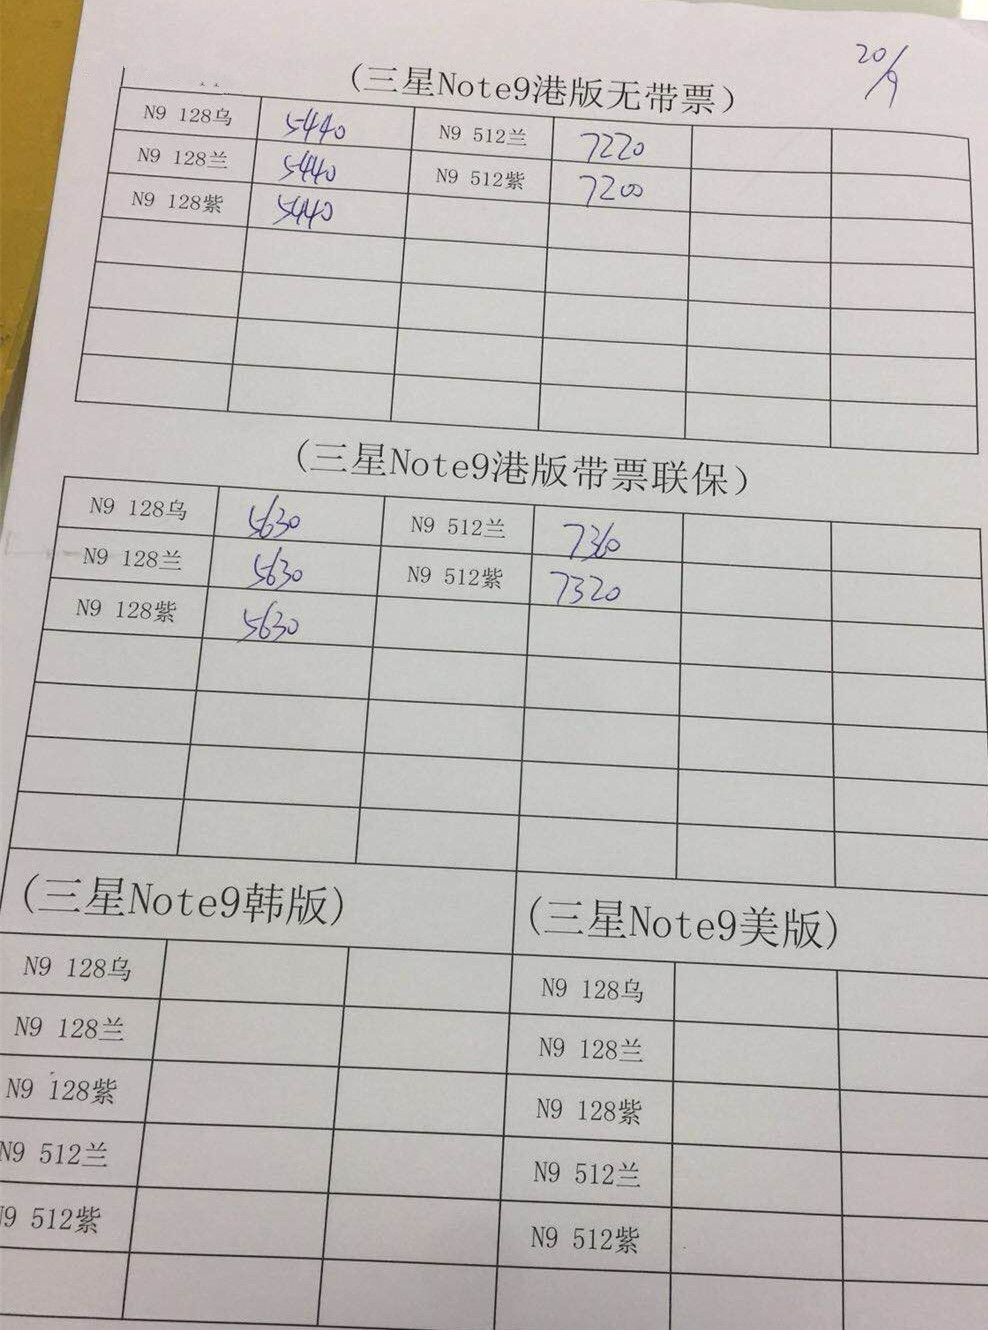 20/9
(三星Note9港版无带票)
N9 128乌 5440 N9 512兰 7220
N9 128兰 5440 N9 512紫 7200
N9 128紫 5440
(三星Note9港版带票联保)
N9 128乌 5630 N9 512兰 7360
N9 128兰 5630 N9 512紫 7320
N9 128紫 5630
(三星Note9韩版) (三星Note9美版)
N9 128乌 N9 128乌
N9 128兰 N9 128兰
N9 128紫 N9 128紫
N9 512兰 N9 512兰
N9 512紫 N9 512紫